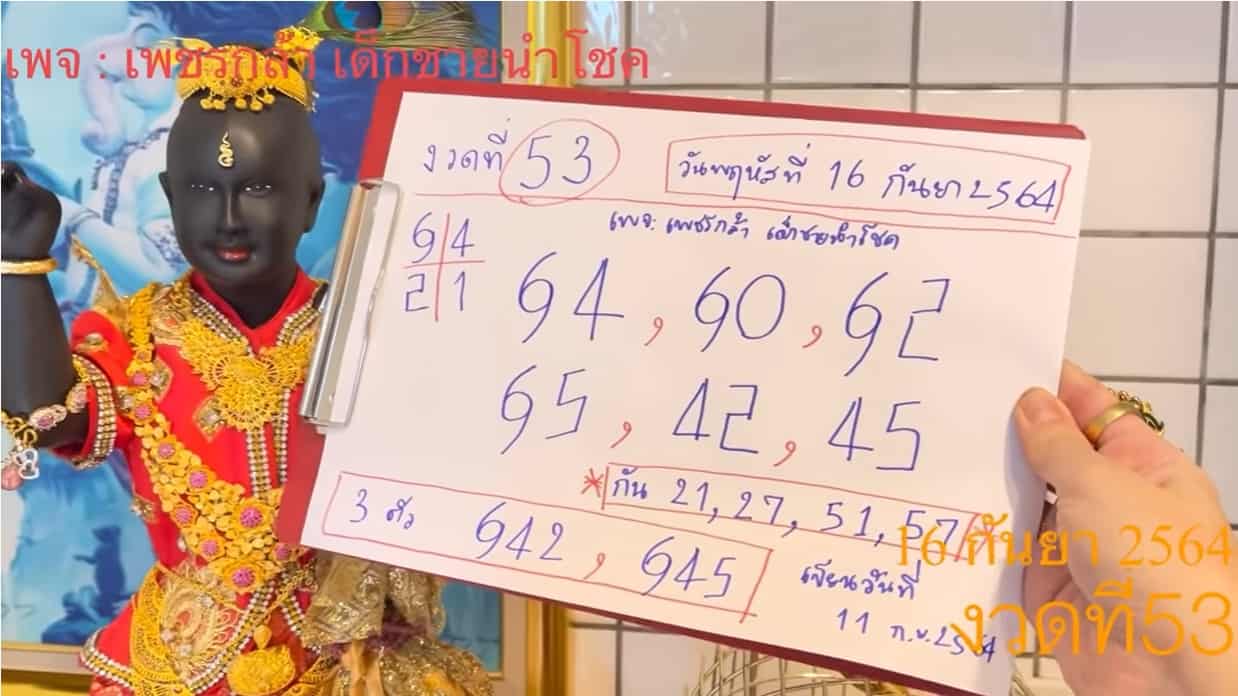 เพจ : เพชรกล้า เด็กชายนำโชค
งวดที่ 53
วันพฤหัสที่ 16 กันยา 2564
เพจ: เพชรกล้า เด็กชายนำโชค
64
21
64, 60, 62
65, 42, 45
* กัน 21, 27, 51, 57
3 ตัว 642, 645
เขียนวันที่
11 ก.ย. 2564
16 กันยา 2564
งวดที่53